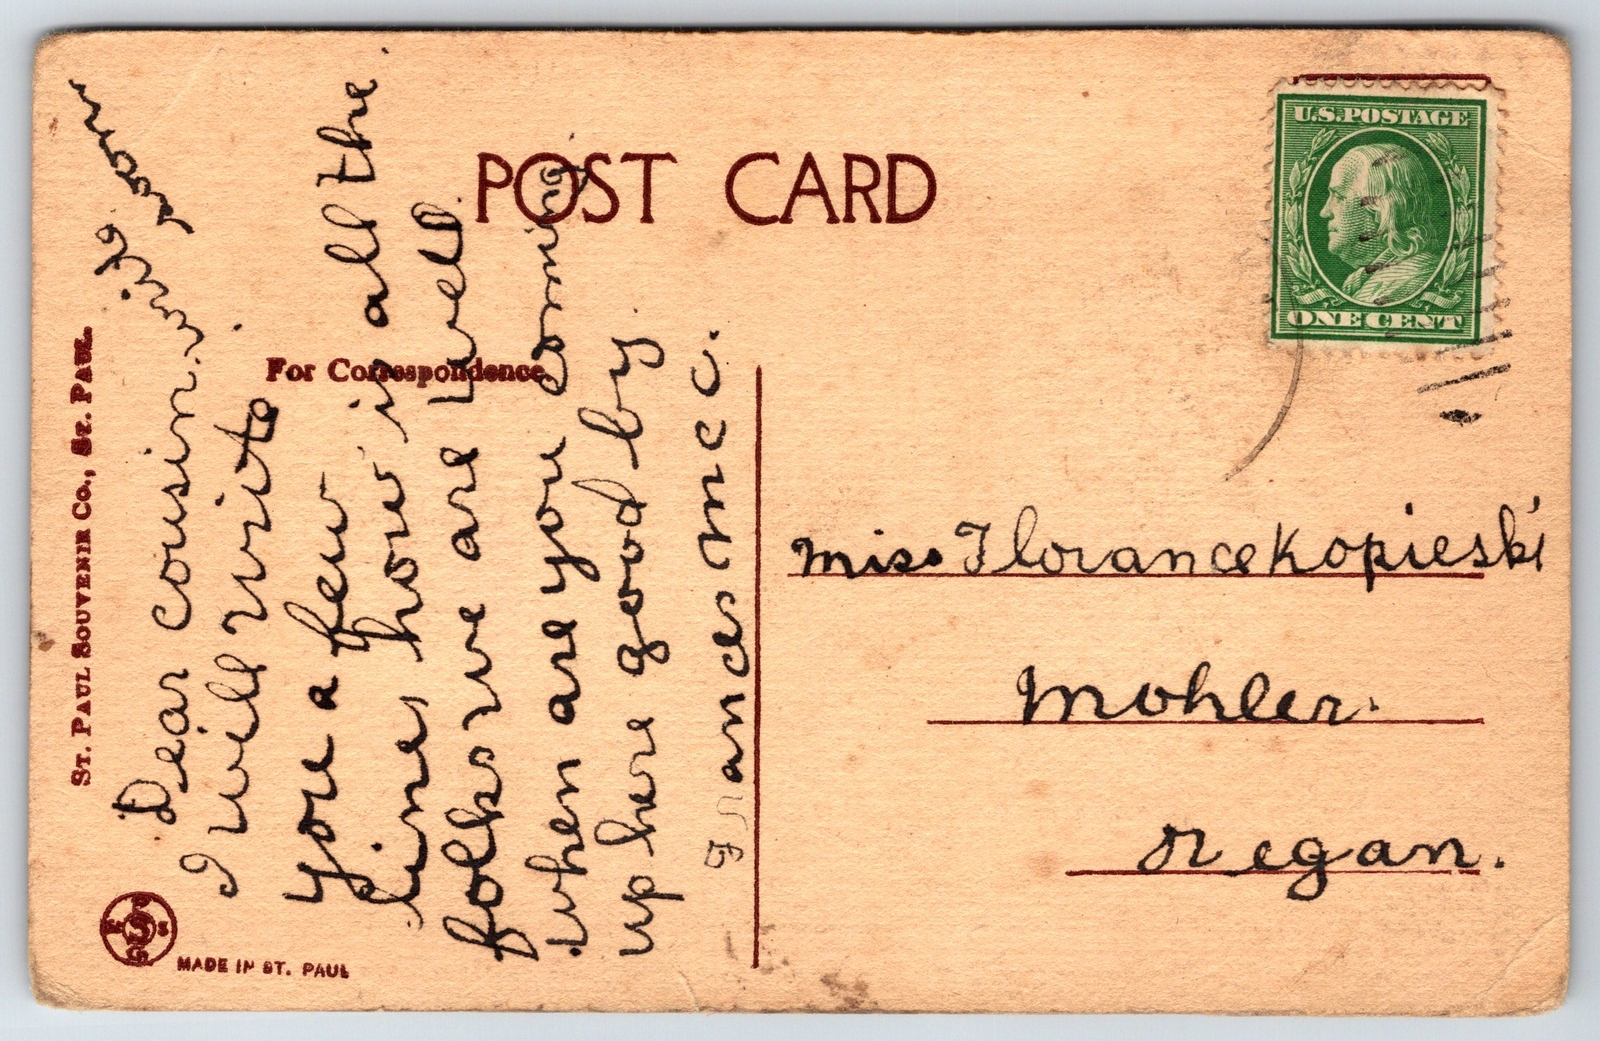 POST CARD
For Correspondence.
ST. PAUL SOUVENIR CO., ST. PAUL.
MADE IN ST. PAUL
U.S. POSTAGE
ONE CENT
Dear cousin.
I will write
you a few
lines how is all the.
folks we are well.
when are you coming
up here good by.
Frances Mc C.
write soon
Miss Florance Kopieski
Mohler.
Oregan.